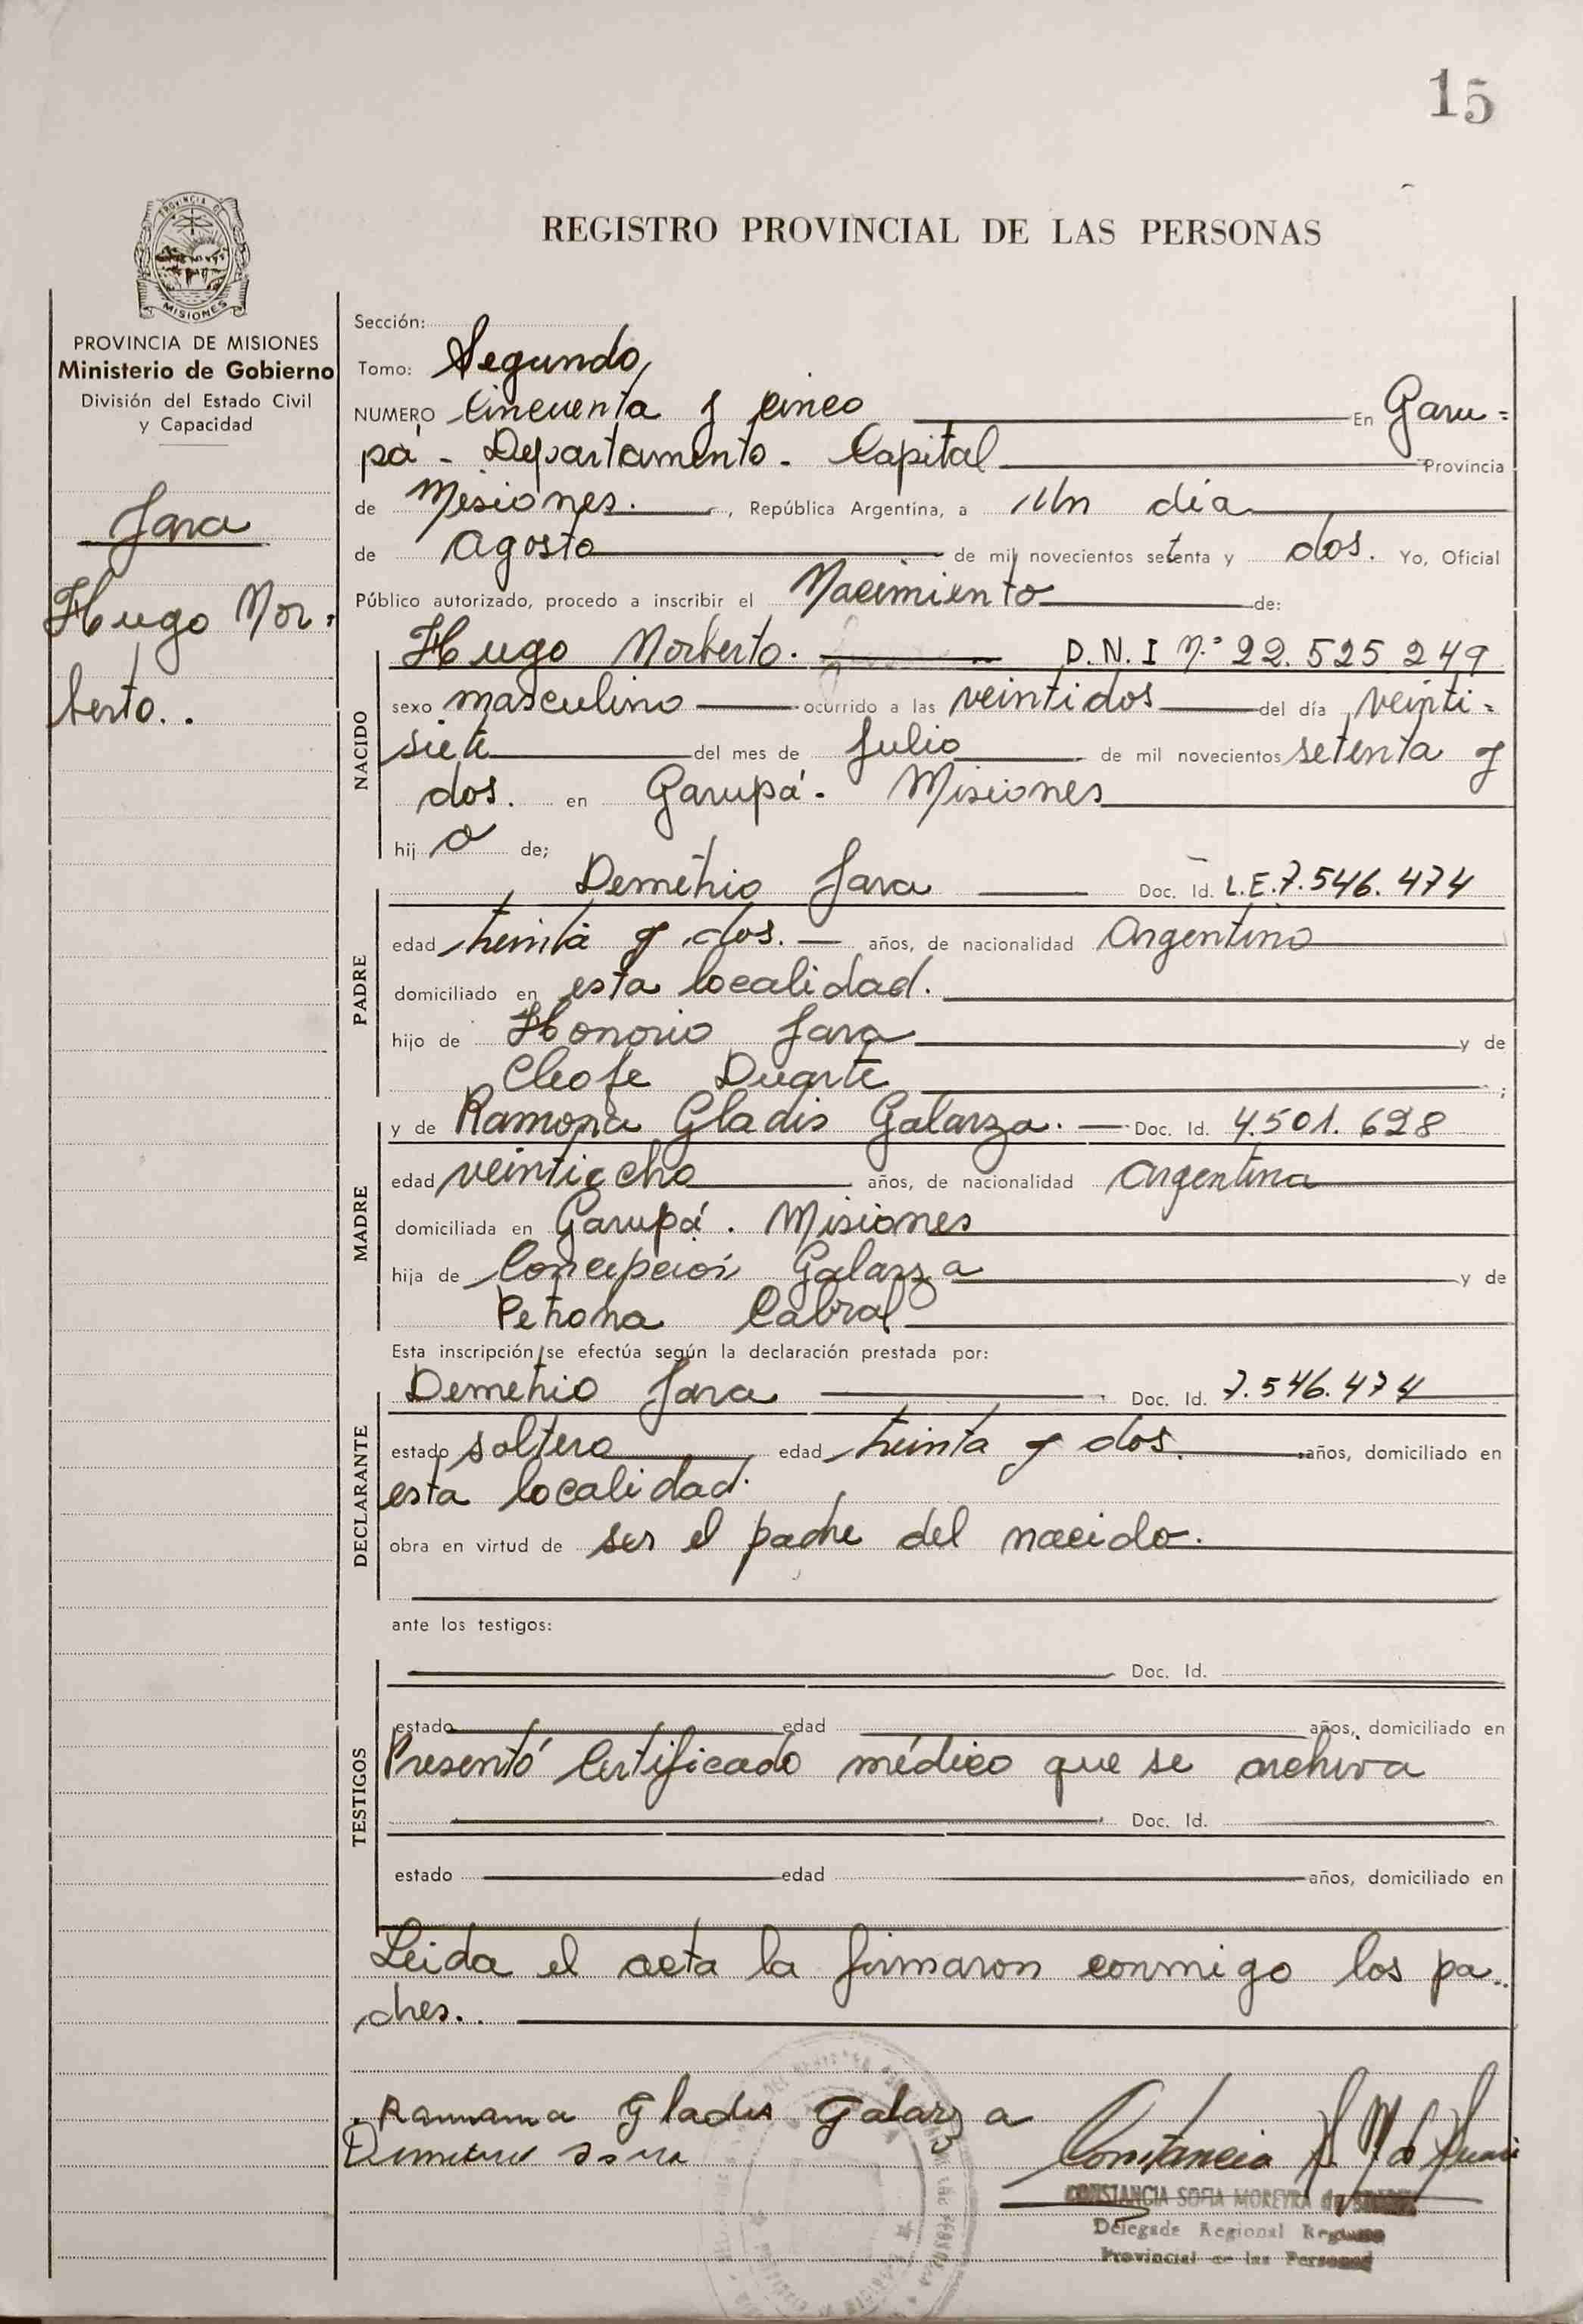 15
REGISTRO PROVINCIAL DE LAS PERSONAS
PROVINCIA DE
MISIONES
PROVINCIA DE MISIONES
Ministerio de Gobierno
División del Estado Civil
y Capacidad
Jara
Hugo Nor=
berto..
Sección:
Tomo: Segundo,
NUMERO Cincuenta y cinco En Garu=
pá - Departamento - Capital Provincia
de Misiones. , República Argentina, a Un día
de Agosto de mil novecientos setenta y dos. Yo, Oficial
Público autorizado, procedo a inscribir el Nacimiento de:
NACIDO
Hugo Norberto. D.N.I Nº 22.525 249
sexo masculino ocurrido a las veintidos del día veinti=
siete del mes de Julio de mil novecientos setenta y
dos. en Garupá - Misiones
hij o de;
PADRE
Demetrio Jara Doc. Id. L.E.7.546.474
edad treinta y dos. años, de nacionalidad Argentino
domiciliado en esta localidad.
hijo de Honorio Jara y de
Cleofe Duarte ;
MADRE
y de Ramona Gladis Galarza. Doc. Id. 4.501.628
edad veintiocho años, de nacionalidad Argentina
domiciliada en Garupá. Misiones
hija de Concepción Galarza y de
Petrona Cabral
Esta inscripción se efectúa según la declaración prestada por:
DECLARANTE
Demetrio Jara Doc. Id. 7.546.474
estado soltero edad treinta y dos. años, domiciliado en
esta localidad.
obra en virtud de ser el padre del nacido.
ante los testigos:
TESTIGOS
Doc. Id.
estado edad años, domiciliado en
Presentó Certificado médico que se archiva
Doc. Id.
estado edad años, domiciliado en
Leida el acta la firmaron conmigo los pa..
dres..
Ramona Gladis Galarza
Demetrio Jara
Constancia
CONSTANCIA SOFIA MOREYRA de
Delegada Regional Registro
Provincial de las Personas